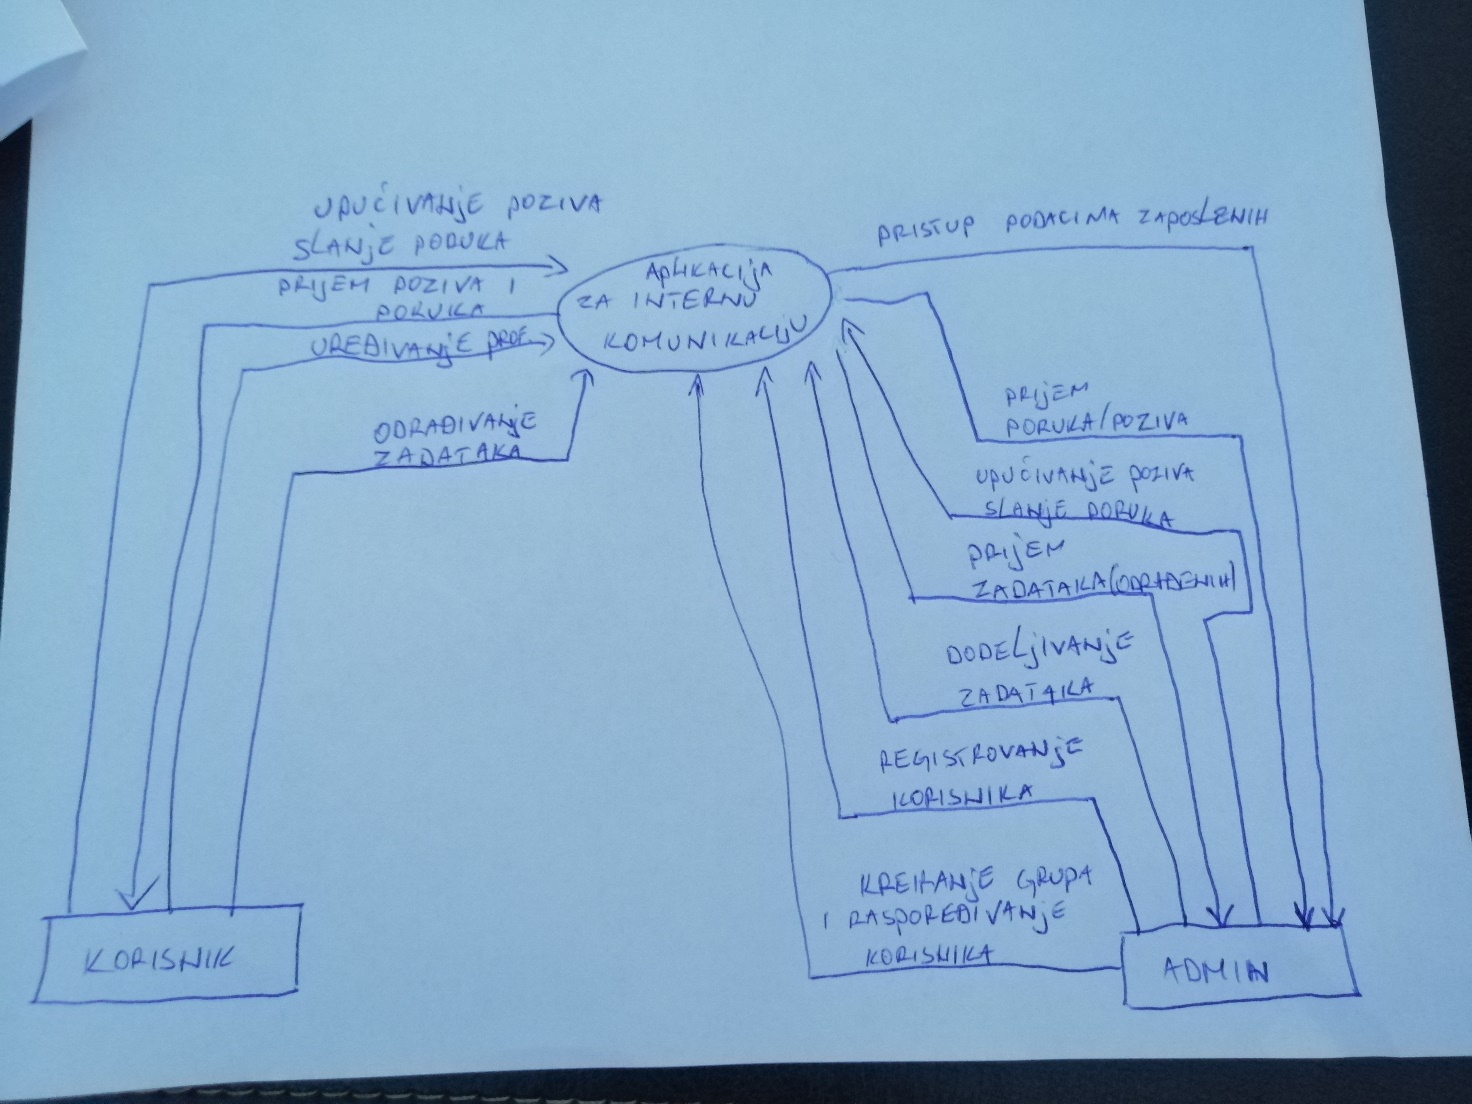 UPUĆIVANJE POZIVA
SLANJE PORUKA
PRIJEM POZIVA I
PORUKA
UREĐIVANJE PROF.
ODRAĐIVANJE
ZADATAKA
APLIKACIJA
ZA INTERNU
KOMUNIKACIJU
PRISTUP PODACIMA ZAPOSLENIH
PRIJEM
PORUKA/POZIVA
UPUĆIVANJE POZIVA
SLANJE PORUKA
PRIJEM
ZADATAKA(ODRAĐENIH)
DODELJIVANJE
ZADATAKA
REGISTROVANJE
KORISNIKA
KREIRANJE GRUPA
I RASPOREĐIVANJE
KORISNIKA
KORISNIK
ADMIN